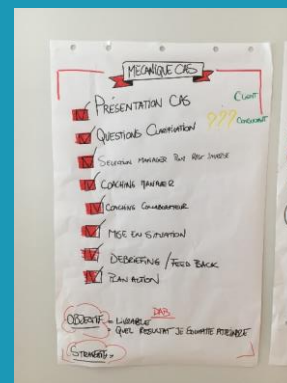 MECANIQUE CAS
PRÉSENTATION CAS
CLIENT
QUESTIONS CLARIFICATION
??? CONSULTANT
SELECTION MANAGER POUR
COACHING MANAGER
COACHING COLLABORATEUR
MISE EN SITUATION
DEBRIEFING / FEED BACK
PLAN ACTION
DAB
OBJECTIF = LIVRABLE
- QUEL RESULTAT JE SOUHAITE ATTEINDRE